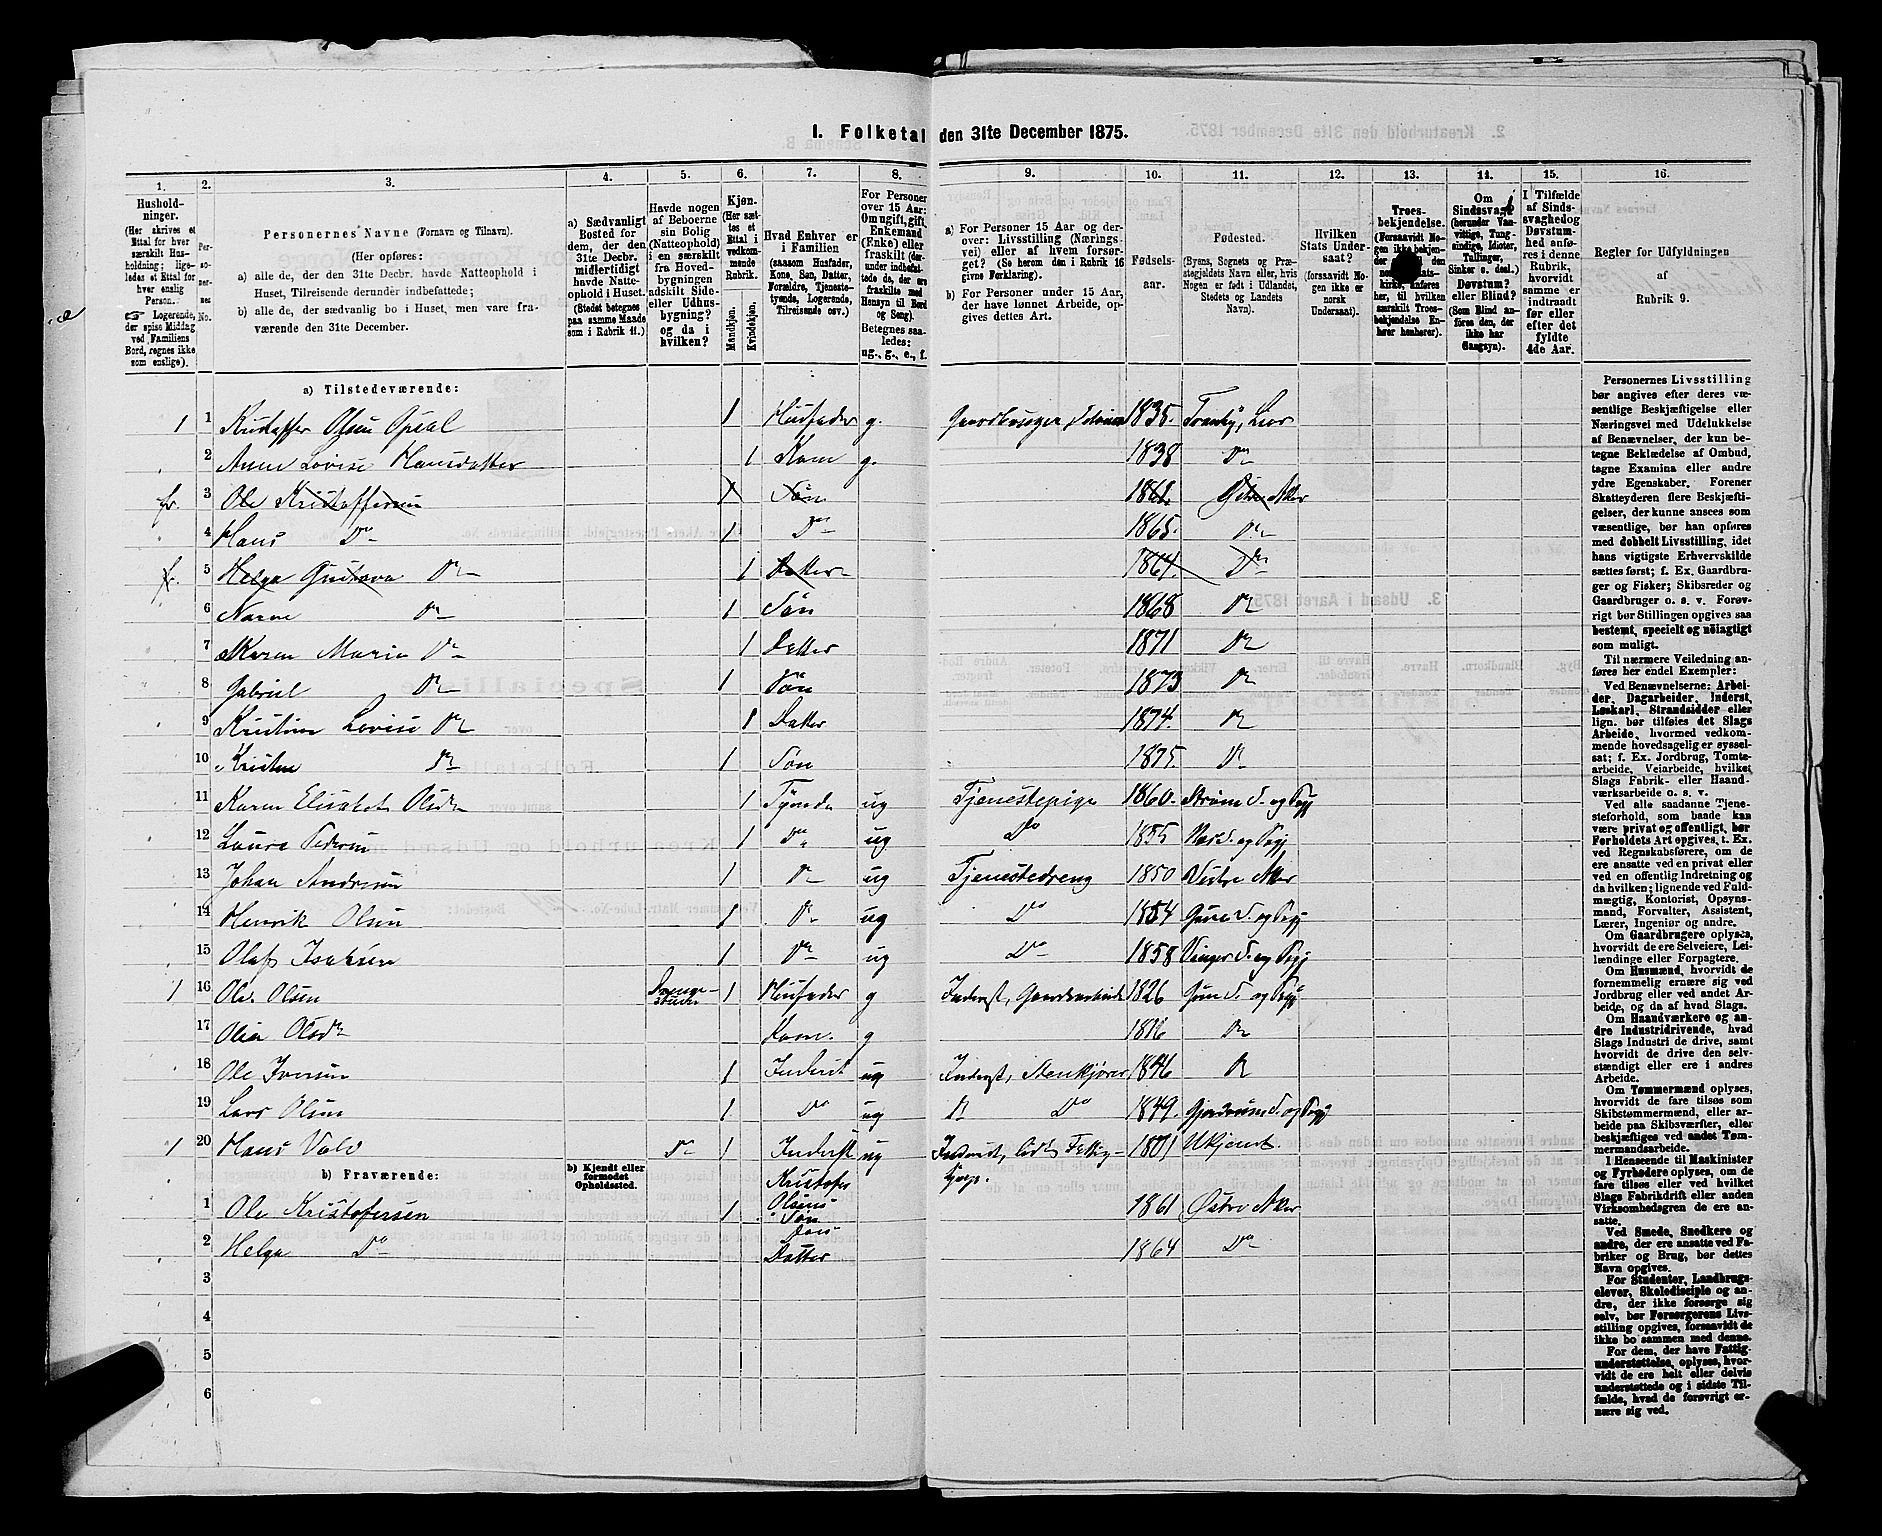 1. Folketal den 31te December 1875.
1. 2. 3. 4. 5. 6. 7. 8. 9. 10. 11. 12. 13. 14. 15. 16.
Hushold-
ninger.
(Her skrives et
Ettal for hver
særskilt Hus-
holdning; lige-
ledes et Ettal for
hver enslig
Person.
☞ Logerende,
der spise Middag
ved Familiens
Bord, regnes ikke
som enslige).
Per-
so-
ner-
nes
No.
Personernes Navne (Fornavn og Tilnavn).
(Her opføres:
a) alle de, der den 31te Decbr. havde Natteophold i
Huset, Tilreisende derunder indbefattede;
b) alle de, der sædvanlig bo i Huset, men vare fra-
værende den 31te December.
a) Sædvanligt
Bosted for
dem, der den
31te Decbr.
midlertidigt
havde Natte-
ophold i Huset.
(Stedet betegnes
paa samme Maade
som i Rubrik 11.)
Havde nogen
af Beboerne
sin Bolig
(Natteophold)
i en særskilt
fra Hoved-
bygningen
adskilt Side-
eller Udhus-
bygning?
og da i
hvilken?
Kjøn.
(Her sæt-
tes et
Ettal i
vedkom-
mende
Rubrik.
Mandkjøn.
Kvindekjøn.
Hvad Enhver er
i Familien
(saasom Husfader,
Kone, Søn, Datter,
Forældre, Tjeneste-
tyende, Logerende,
Tilreisende osv.)
For Personer
over 15 Aar:
Om ugift, gift,
Enkemand
(Enke) eller
fraskilt (der-
under indbefat-
tede de, der ere
fraskilte med
Hensyn til Bord
og Seng).
Betegnes saa-
ledes:
ug., g., e., f.
a) For Personer 15 Aar og der-
over: Livsstilling (Nærings-
vei) eller af hvem forsør-
get? (Se herom den i Rubrik 16
givne Forklaring).
b) For Personer under 15 Aar,
der have lønnet Arbeide, op-
gives dettes Art.
Fødsels-
aar.
Fødested.
(Byens, Sognets og Præ-
stegjeldets Navn eller, hvis
Nogen er født i Udlandet,
Stedets og Landets
Navn).
Hvilken
Stats Under-
saat?
(forsaavidt No-
gen ikke er
norsk
Undersaat).
Troes-
bekjendelse.
(Forsaavidt No-
gen ikke bekjen-
der
kirke, anføres
her, til hvilken
særskilt Troes-
bekjendelse En-
hver henhører).
Om
Sindssvag?
(herunder Van-
vittige, Tung-
sindige, Idioter,
Tullinger,
Sinker o. desl.)
Døvstum?
eller Blind?
(Som Blind an-
føres den, der
ikke har
Gangsyn).
I Tilfælde
af Sinds-
svaghed og
Døvstum-
hed anfø-
res i denne
Rubrik,
hvorvidt
samme er
indtraadt
før eller
efter det
fyldte
4de Aar.
Regler for Udfyldningen
af
Rubrik 9.
a) Tilstedeværende:
1 1 Kristoffer Olsen Opsal 1 Husfader g. Gaardbruger Selveier 1835. Tranby, Lier
2 Anne Lovise Hansdatter 1 Kone g. 1838 Do
fr. 3 Ole Kristoffersen Søn 1861. Østre Aker
4 Hans Do 1 Do 1865. Do
fr. 5 Helga Gustava Do 1 Datter 1864. Do
6 Do 1 Søn 1868 Do
7 Karen Marie Do 1 Datter 1871 Do
8 Gabriel Do 1 Søn 1873 Do
9 Kristine Lovise Do 1 Datter 1874. Do
10 Do 1 Søn 1875. Do
11 Karen Elisabet Olsdr 1 Tyende ug Tjenestepige 1860. Strøm S. og Pgj
12 Laura Pedersen 1 Do ug Do 1855 Næs S. og Pgj
13 Johan Andersen 1 Do ug Tjenestedreng 1850 Vestre Aker
14 Henrik Olsen 1 Do ug Do 1854 Grue S. og Pgj
15 Olaf Isaksen 1 Do ug Do 1858 Vinger S. og Pgj
1 16 Ole Olsen Drenge-
stuen 1 Husfader g Inderst, Gaardsarbeide 1826 Grue S. og Pgj
17 Olea Olsdr Kone. g 1816 Do
18 Ole Iversen 1 Inderst ug Inderst, Stenkjører 1846 Do
19 Lars Olsen 1 Do ug Do Do 1849. Gjerdrum S. og Pgj
1 20 Hans Vold Do 1 Inderst ug Inderst, Fattig- 1801 Ukjendt
b) Fraværende:
b) Kjendt eller
formodet
Opholdssted.
1 Ole Kristofersen 1 Kristofer
Olsens
Søn 1861 Østre Aker
2 Helga Do Dais
Datter 1864 Do
3
4
5
6
Personernes Livsstilling
bør angives efter deres væ-
sentlige Beskjæftigelse eller
Næringsvei med Udelukkelse
af Benævnelser, der kun be-
tegne Beklædelse af Ombud,
tagne Examina eller andre
ydre Egenskaber. Forener
Skatteyderen flere Beskjæfti-
gelser, der kunne ansees som
væsentlige, bør han opføres
med dobbelt Livsstilling, idet
hans vigtigste Erhvervskilde
sættes først; f. Ex. Gaardbru-
ger og Fisker; Skibsreder og
Gaardbruger o. s. v. Forøv-
rigt bør Stillingen opgives saa
bestemt, specielt og nøiagtigt
som muligt.
Til nærmere Veiledning an-
føres her endel Exempler:
Ved Benævnelserne: Arbei-
der, Dagarbeider, Inderst,
Løskarl, Strandsidder eller
lign. bør tilføies det Slags
Arbeide, hvormed vedkom-
mende hovedsagelig er syssel-
sat; f. Ex. Jordbrug, Tomte-
arbeide, Veiarbeide, hvilket
Slags Fabrik- eller Haand-
værksarbeide o. s. v.
Ved alle saadanne Tjene-
steforhold, som baade kan
være privat og offentligt, bør
Forholdets Art opgives, t. Ex.
ved Regnskabsførere, om de
ere ansatte ved en privat eller
ved en offentlig Indretning og
da hvilken; lignende ved Fuld-
mægtig, Kontorist, Opsyns-
mand, Forvalter, Assistent,
Lærer, Ingeniør og andre.
Om Gaardbrugere oplyses,
hvorvidt de ere Selveiere, Lei-
lændinge eller Forpagtere.
Om Husmænd, hvorvidt de
fornemmelig ernære sig ved
Jordbrug eller ved andet Ar-
beide, og da af hvad Slags.
Om Haandværkere og an-
dre Industridrivende, hvad
Slags Industri de drive, samt
hvorvidt de drive den selv-
stændigt eller ere i andres
Arbeide.
Om Tømmermænd oplyses,
hvorvidt de fare tilsøs som
Skibstømmermænd, eller ar-
beide paa Skibsværfter, eller
beskjæftiges ved andet Tøm-
mermandsarbeide.
I Henseende til Maskinister
og Fyrbødere oplyses, om de
fare tilsøs eller ved hvilket
Slags Fabrikdrift eller anden
Virksomhedsgren de ere an-
satte.
Ved Smede, Snedkere og
andre, der ere ansatte ved Fa-
briker og Brug, bør dettes
Navn opgives.
For Studenter, Landbrugs-
elever, Skoledisciple og an-
dre, der ikke forsørge sig
selv, bør Forsørgerens Livs-
stilling opgives, forsaavidt de
ikke bo sammen med denne.
For dem, der have Fattig-
understøttelse, oplyses, hvor-
vidt de ere helt eller delvis
understøttede og i sidste Til-
fælde, hvad de forøvrigt er-
nære sig ved.